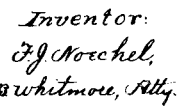 Inventor:
F. J. Noechel,
Whitmore, Atty.